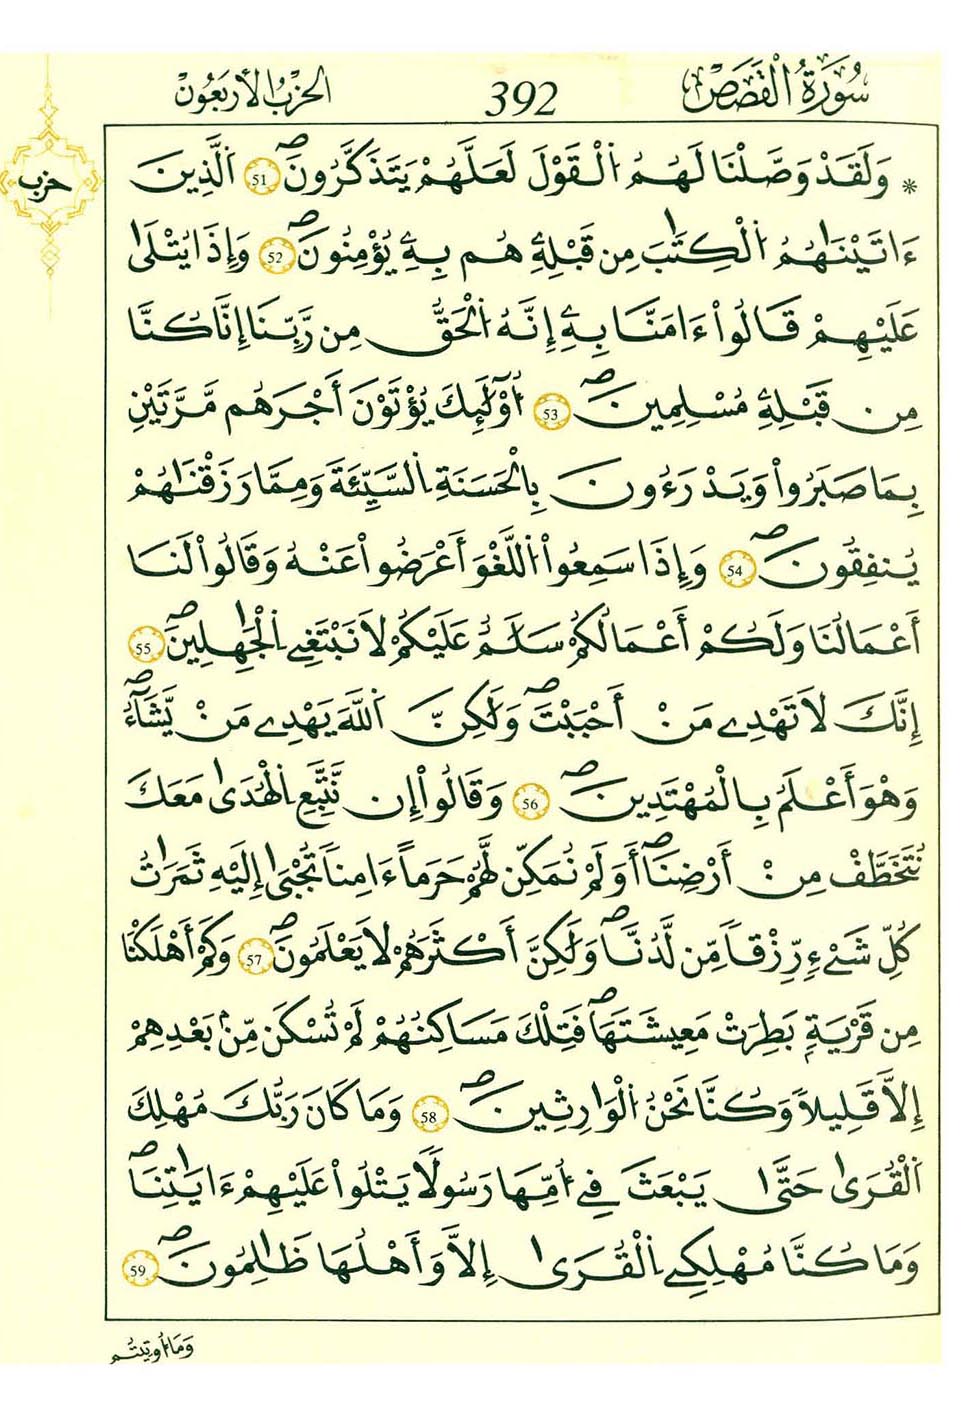 سُورَةُ الْقَصَصِ 392 الحِزْبُ الأَرْبَعُونَ
حزب
* وَلَقَدْ وَصَّلْنَا لَهُمُ اُلْقَوْلَ لَعَلَّهُمْ يَتَذَكَّرُونَۖ 51 اَلذِينَ
ءَاتَيْنَٰهُمُ اُلْكِتَٰبَ مِن قَبْلِهِۦ هُم بِهِۦ يُؤْمِنُونَۖ 52 وَإِذَا يُتْلَىٰ
عَلَيْهِمْ قَالُواْ ءَامَنَّا بِهِۦٓ إِنَّهُ اُلْحَقُّ مِن رَّبِّنَا إِنَّا كُنَّا
مِن قَبْلِهِۦ مُسْلِمِينَۖ 53 أُوْلَٰٓئِكَ يُؤْتَوْنَ أَجْرَهُم مَّرَّتَيْنِ
بِمَا صَبَرُواْ وَيَدْرَءُونَ بِالْحَسَنَةِ اِلسَّيِّئَةَ وَمِمَّا رَزَقْنَٰهُمْ
يُنفِقُونَۖ 54 وَإِذَا سَمِعُواْ اُللَّغْوَ أَعْرَضُواْ عَنْهُ وَقَالُواْ لَنَا
أَعْمَالُنَا وَلَكُمْ أَعْمَالُكُمْ سَلَٰمٌ عَلَيْكُمْ لَا نَبْتَغِے اِلْجَٰهِلِينَۖ 55
إِنَّكَ لَا تَهْدِے مَنْ أَحْبَبْتَۖ وَلَٰكِنَّ اَللَّهَ يَهْدِے مَنْ يَّشَآءُۖ
وَهْوَ أَعْلَمُ بِالْمُهْتَدِينَۖ 56 وَقَالُواْ إِن نَّتَّبِعِ اِلْهُدَىٰ مَعَكَ
نُتَخَطَّفْ مِنْ أَرْضِنَاۖ أَوَلَمْ نُمَكِّن لَّهُمْ حَرَماً ءَامِناً تُجْبَىٰ إِلَيْهِ ثَمَرَٰتُ
كُلِّ شَےْءٍ رِّزْقاً مِّن لَّدُنَّاۖ وَلَٰكِنَّ أَكْثَرَهُمْ لَا يَعْلَمُونَۖ 57 وَكَمْ أَهْلَكْنَا
مِن قَرْيَةٍ بَطِرَتْ مَعِيشَتَهَاۖ فَتِلْكَ مَسَاكِنُهُمْ لَمْ تُسْكَن مِّنۢ بَعْدِهِمْ
إِلَّا قَلِيلاً وَكُنَّا نَحْنُ اُلْوَٰرِثِينَۖ 58 وَمَا كَانَ رَبُّكَ مُهْلِكَ
اَلْقُرَىٰ حَتَّىٰ يَبْعَثَ فِےٓ أُمِّهَا رَسُولاً يَتْلُواْ عَلَيْهِمْ ءَايَٰتِنَاۖ
وَمَا كُنَّا مُهْلِكِے اِلْقُرَىٰٓ إِلَّا وَأَهْلُهَا ظَٰلِمُونَۖ 59
وَمَا أُوتِيتُم